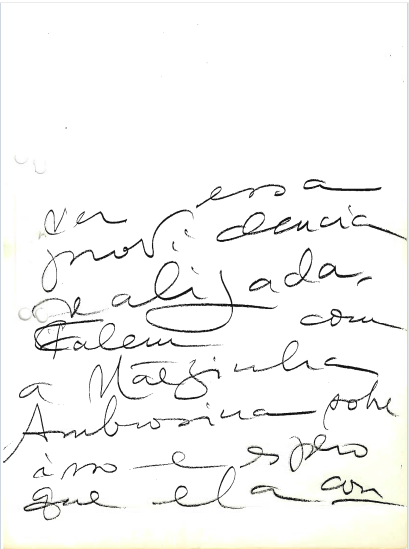 ver essa
providencia
realizada.
Falem com
a Mãezinha
Ambrosina sobre
isso e espero
que ela con